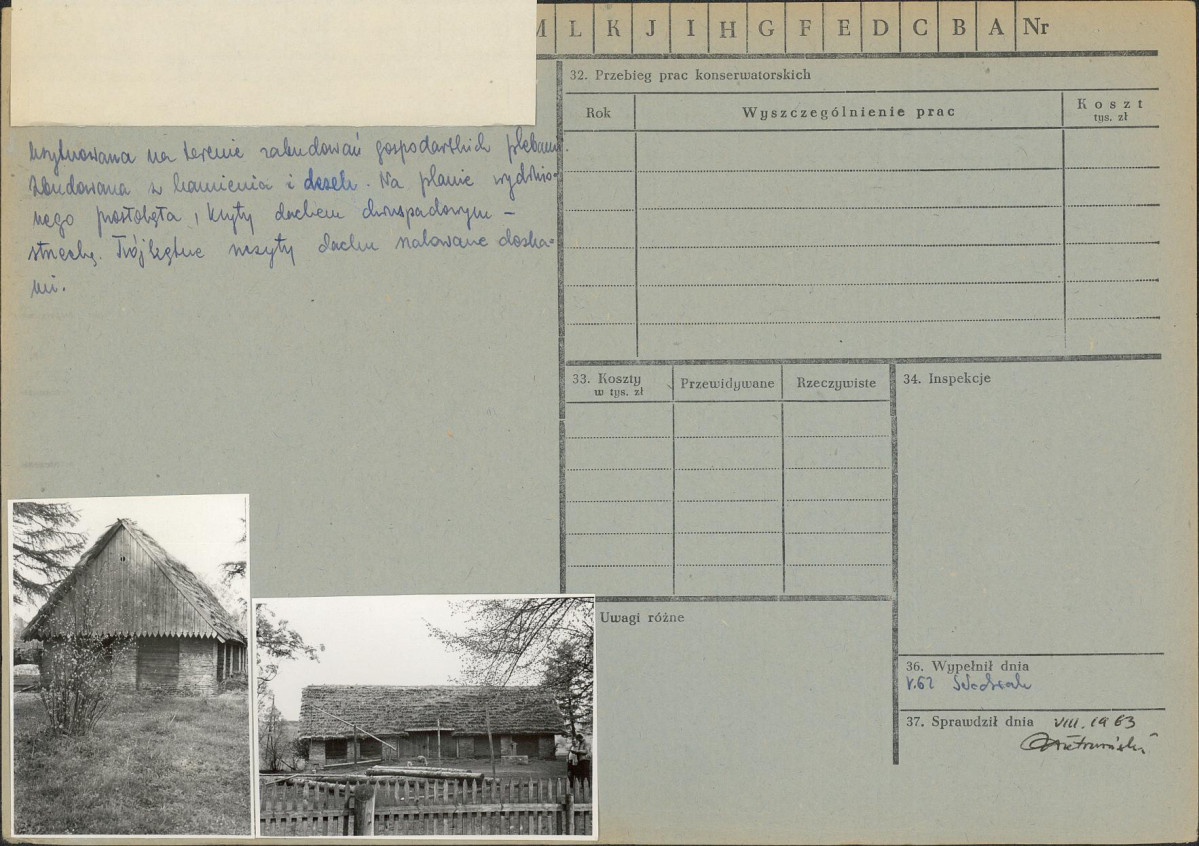 L K J I H G F E D C B A Nr
32. Przebieg prac konserwatorskich
Rok Wyszczególnienie prac Koszt
tys. zł
usytuowana na terenie zabudowań gospodarskich plebanii.
Zbudowana z kamienia i desek. Na planie wydłużo-
nego prostokąta, kryty dachem dwuspadowym –
strzechą. Trójkątne szczyty dachu szalowane deska-
mi.
33. Koszty
w tys. zł
Przewidywane Rzeczywiste
34. Inspekcje
Uwagi różne
36. Wypełnił dnia
V.62
37. Sprawdził dnia VIII.1963